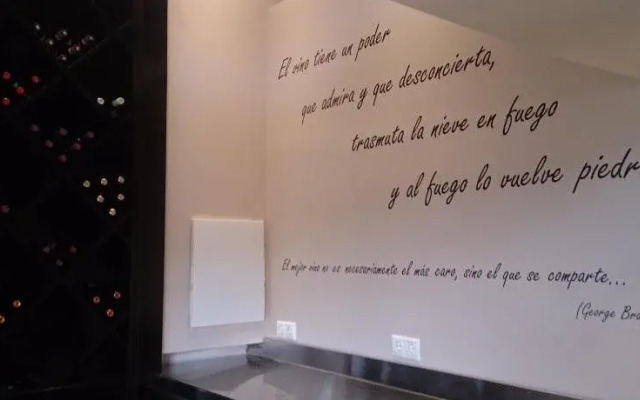 El vino tiene un poder
que admira y que desconcierta,
trasmuta la nieve en fuego
y al fuego lo vuelve piedr
El mejor vino no es necesariamente el más caro, sino el que se comparte...
(George Bra